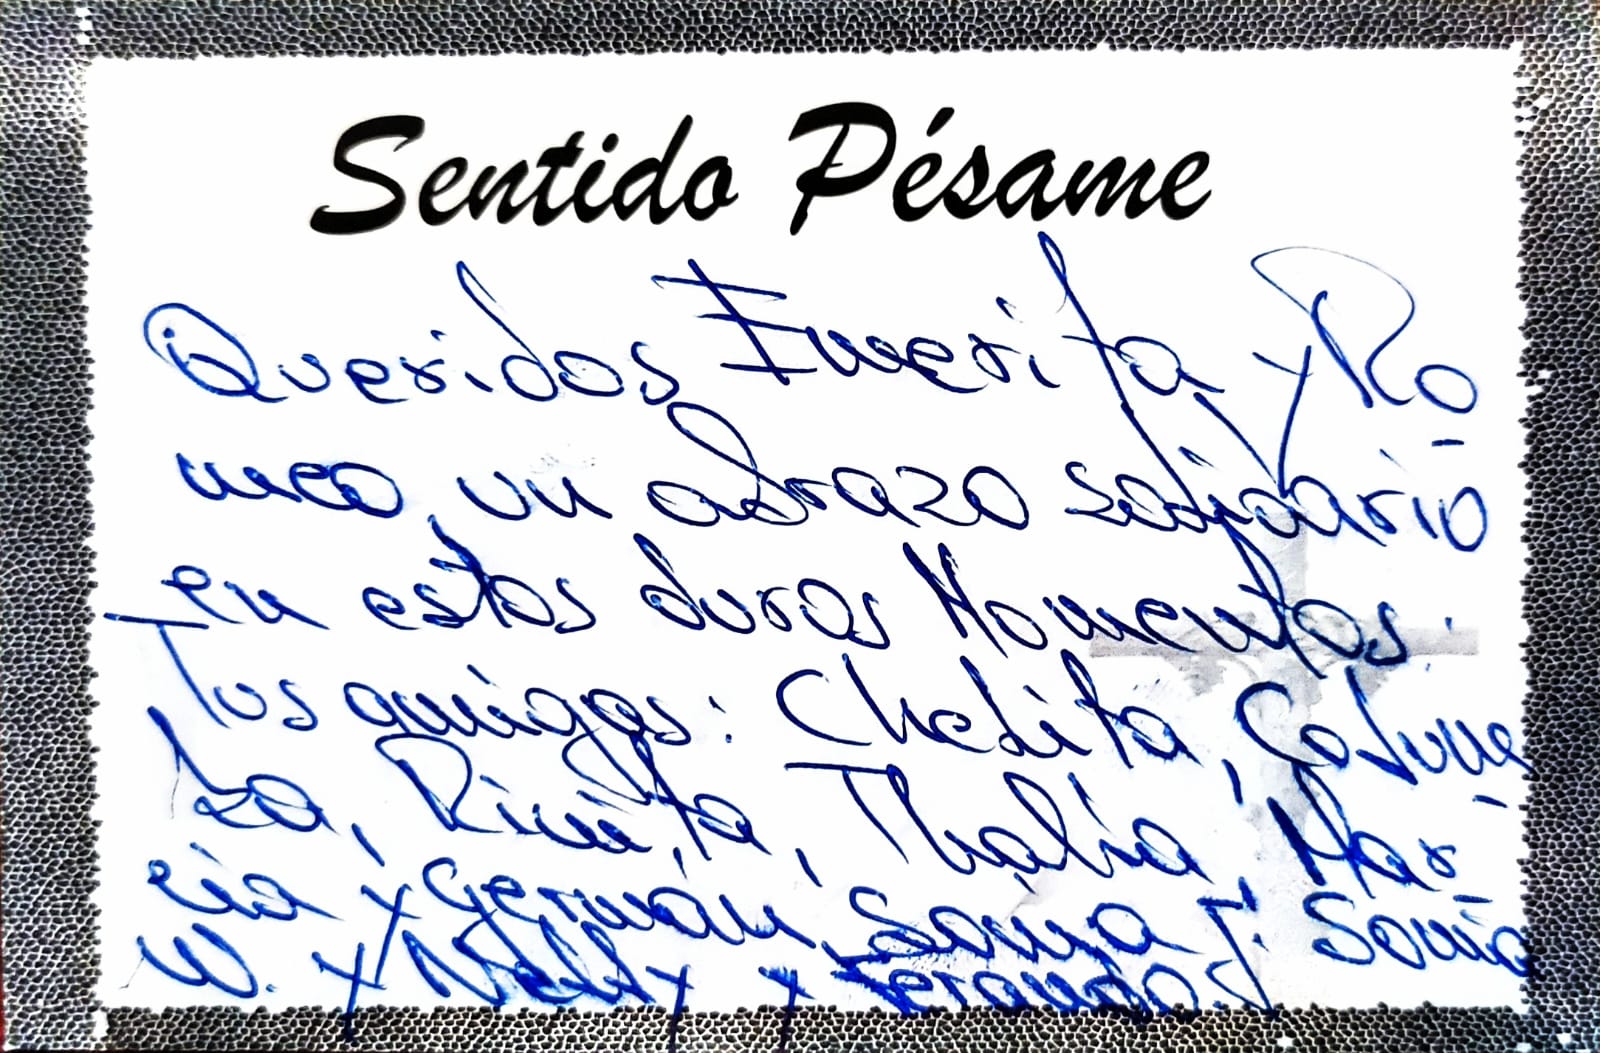 Sentido Pésame
Queridos Emerita y Ro
meo, un abrazo solidario
en estos duros Momentos.
Tus amigas: Chelita, Columé
ba, Rinita, Thalia, Mar-
cia y Germán, Sonia J. Sonia
W. y Nelly y Fernando.